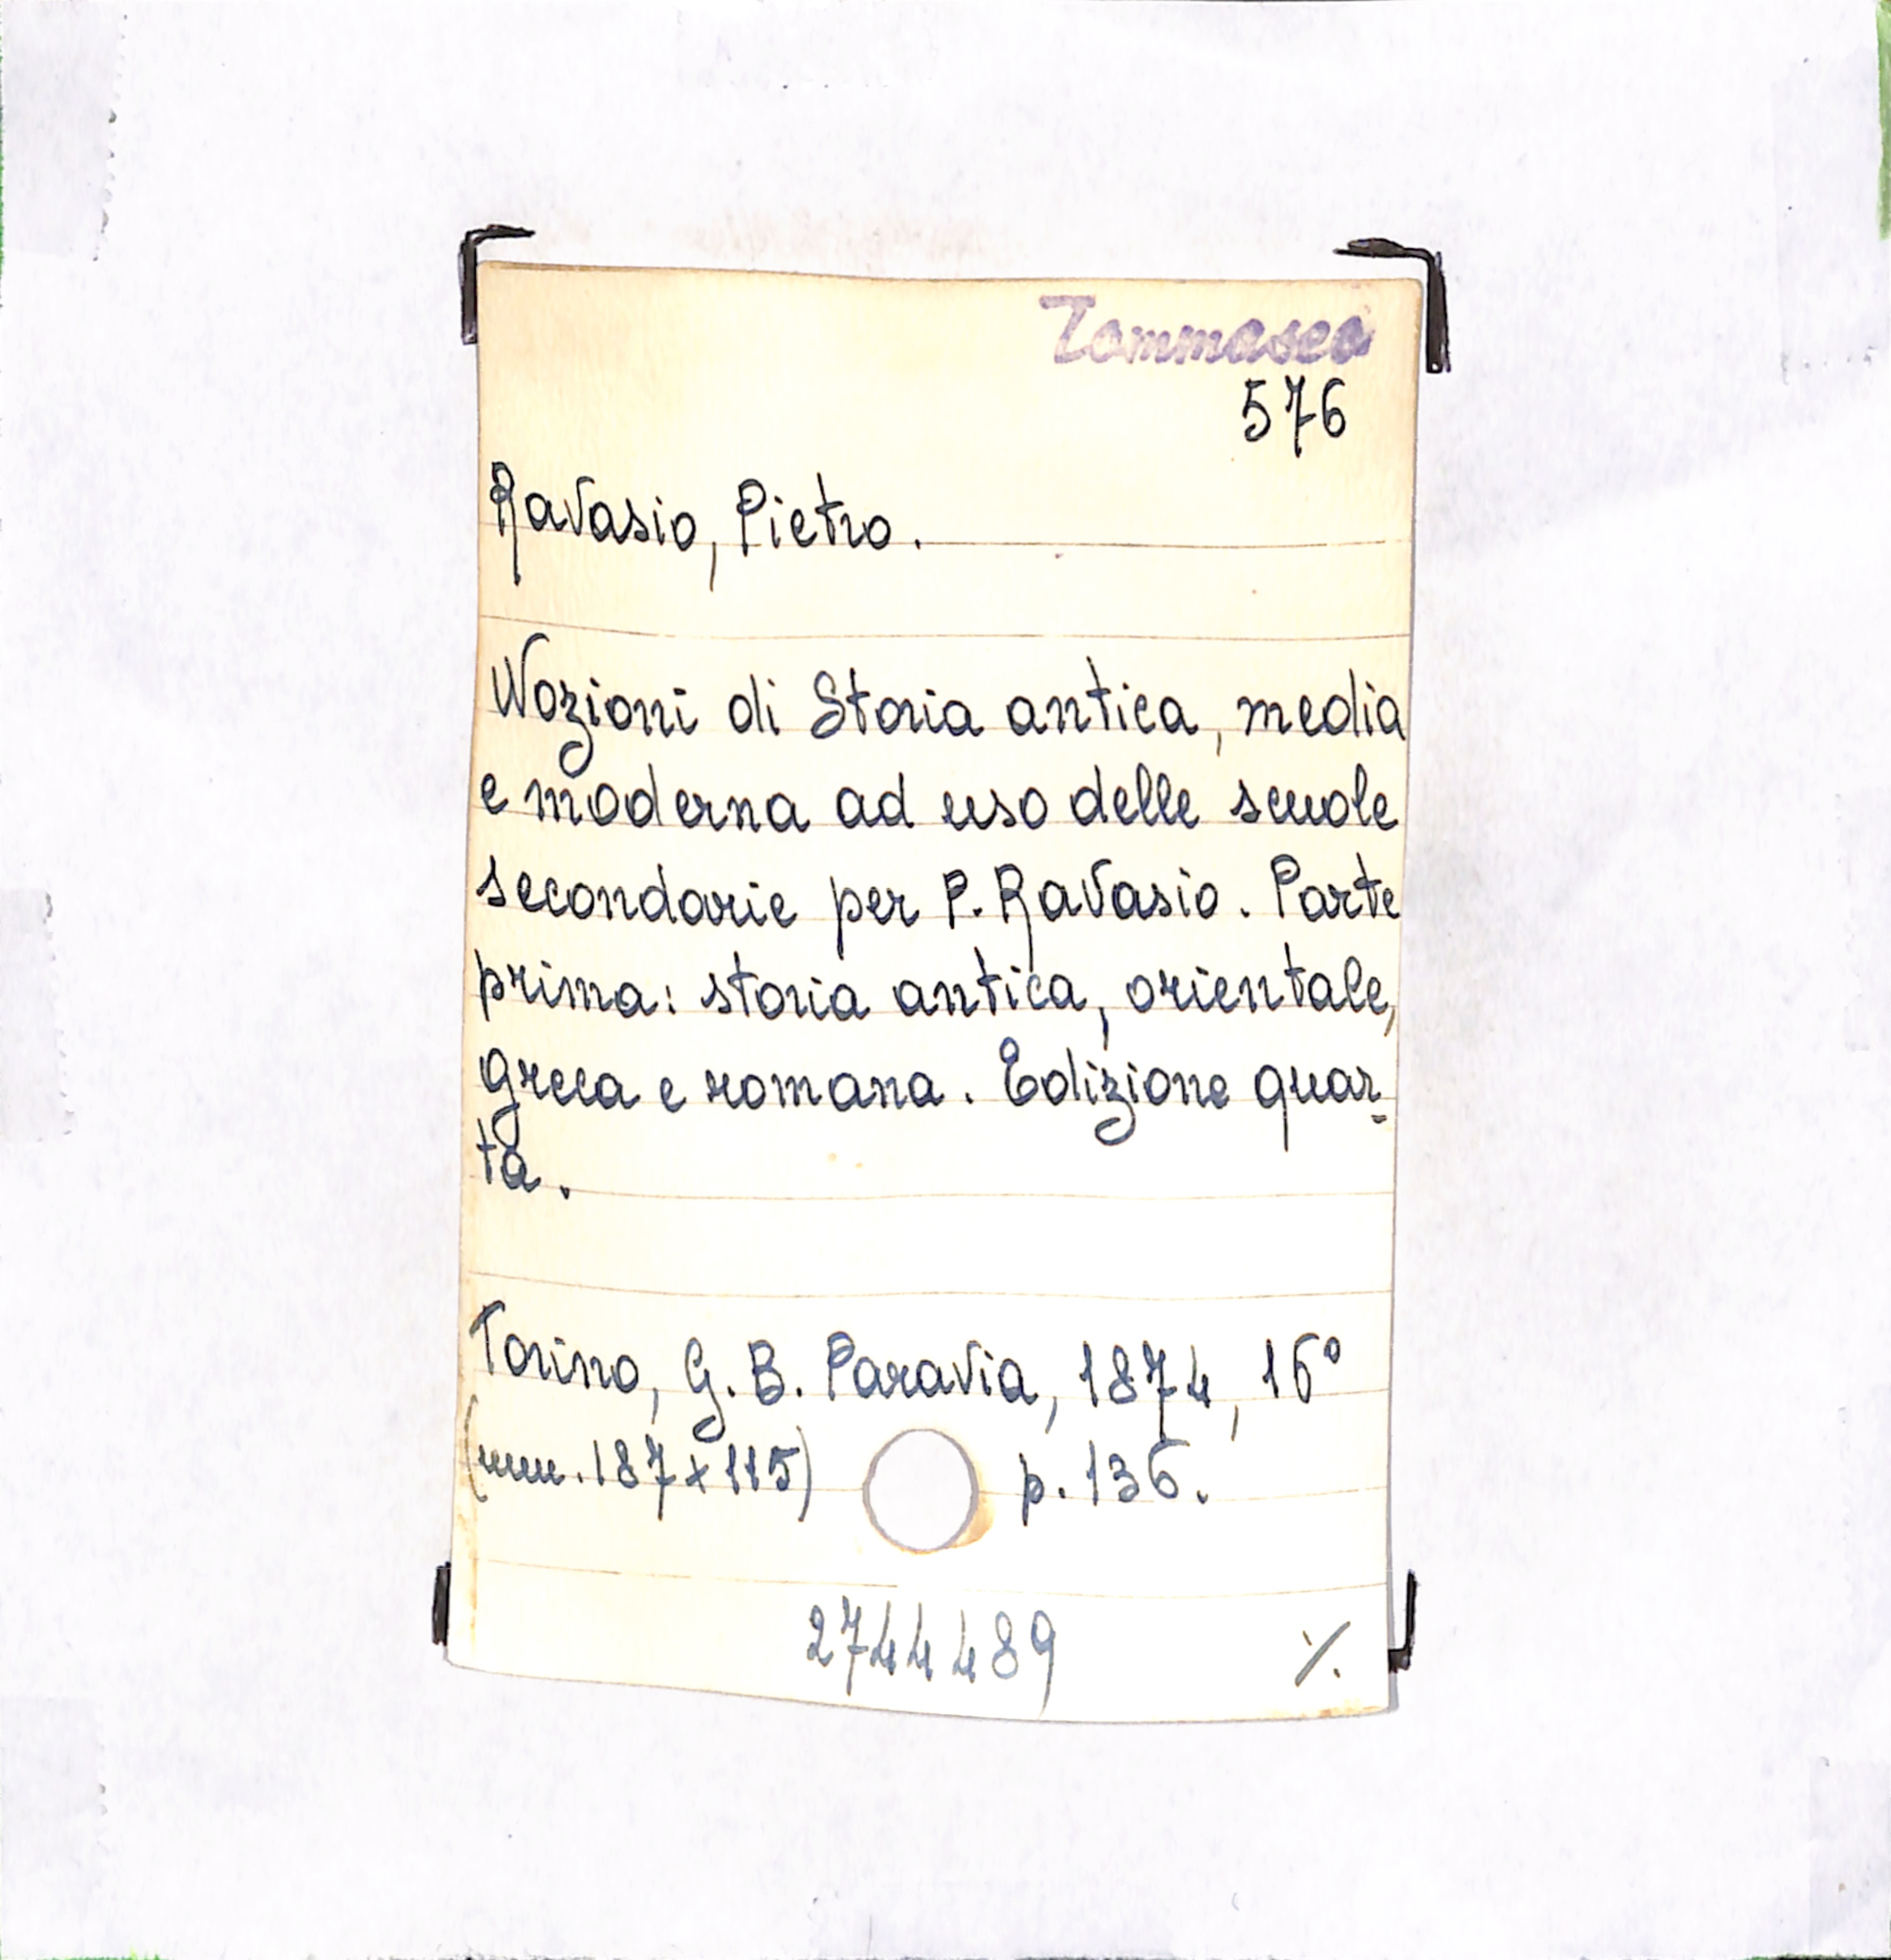 Tommaseo
576
Ravasio, Pietro.
Nozioni di Storia antica, media
e moderna ad uso delle scuole
secondarie per P. Ravasio. Parte
prima: storia antica, orientale,
greca e romana. Edizione quar-
ta.
Torino, G. B. Paravia, 1874, 16°
(mm. 187 x 115) p. 136.
2744489 ./.